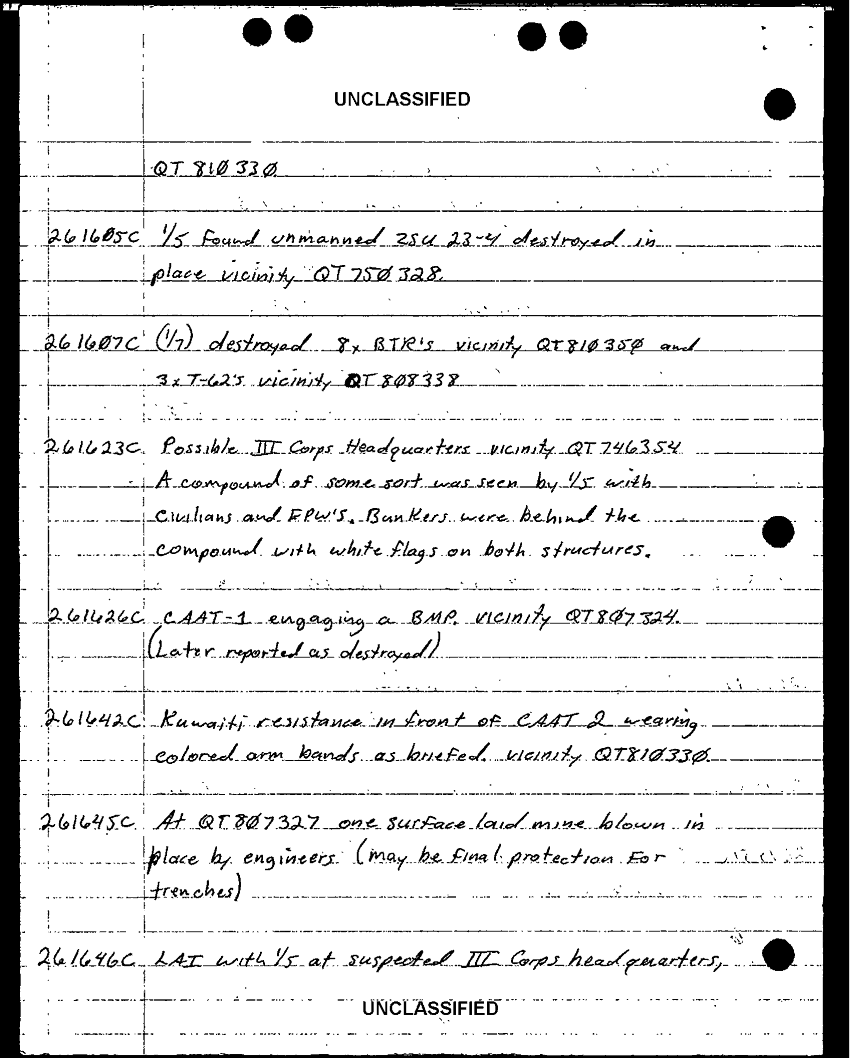 UNCLASSIFIED
QT 81Ø 33Ø
2616Ø5C 1/5 found unmanned ZSU 23-4 destroyed in
place vicinity QT 75Ø 328.
2616Ø7C (1/7) destroyed 8x BTR's vicinity QT81Ø35Ø and
3x T-62's vicinity QT 8Ø8338
261623C Possible III Corps Headquarters vicinity QT 746354
A compound of some sort was seen by 1/5 with
civilians and EPW'S. Bunkers were behind the
compound with white flags on both structures.
261626C CAAT-1 engaging a BMP. vicinity QT8Ø7324.
(Later reported as destroyed)
261642C Kuwaiti resistance in front of CAAT 2 wearing
colored arm bands as briefed. vicinity QT81Ø33Ø
261645C At QT 8Ø7327 one surface laid mine blown in
place by engineers (may be final protection for
trenches)
261646C LAI with 1/5 at suspected III Corps headquarters,
UNCLASSIFIED